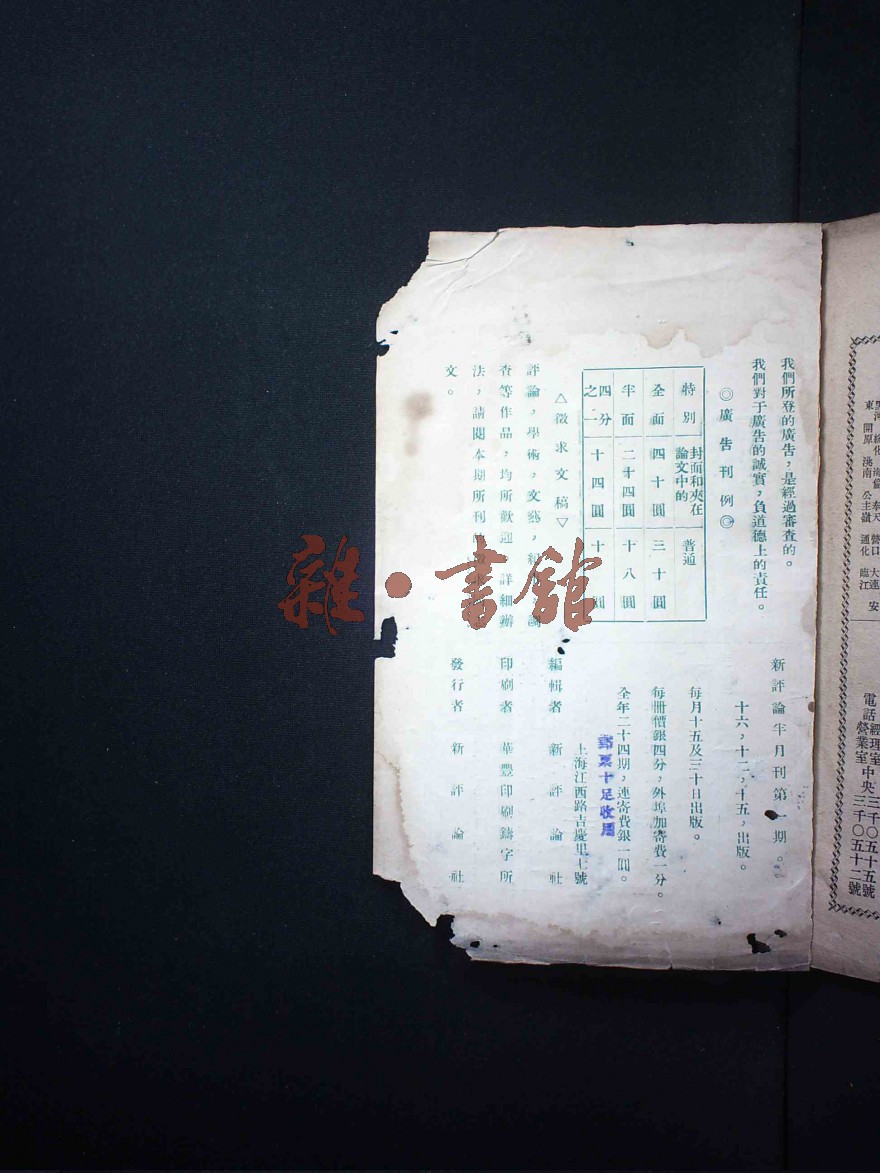 我們所登的廣告,是經過審查的。
我們對于廣告的誠實,負道德上的責任。
◎廣告刊例◎
特別 封面和夾在論文中的 普通
全面 四十圓 三十圓
半面 二十四圓 十八圓
四分之一 十四圓 十圓
△徵求文稿▽
評論,學術,文藝,
查等作品,均所歡迎 詳細辦
法,請閱本期所刊
文。
新評論半月刊第一期。
十六,十二,十五,出版。
每月十五及三十日出版。
每冊價銀四分,外埠加寄費一分。
全年二十四期,連寄費銀一圓。
郵票十足收用
上海江西路吉慶里七號
編輯者 新評論社
印刷者 華豐印刷鑄字所
發行者 新評論社
雜·書館
電話 經理室 中央三千〇五十五號
營業室 三千〇五十二號
東 開原 洮南 公主嶺 通化 臨江